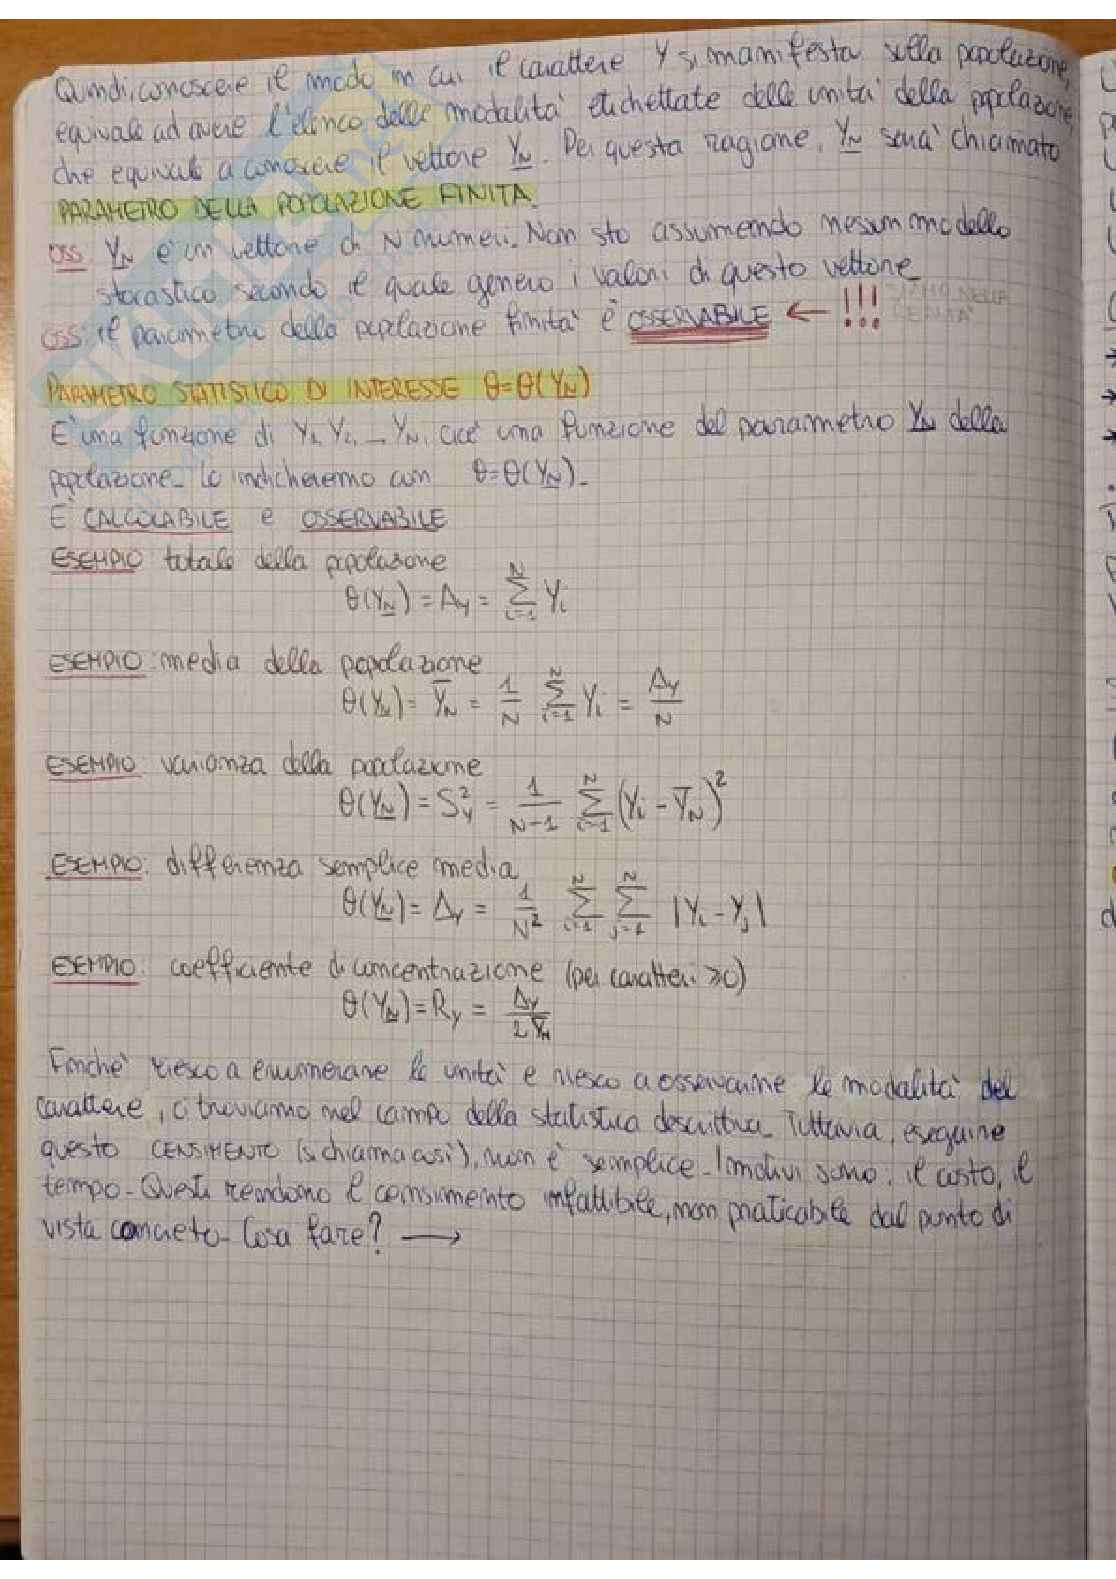 Quindi, conoscere il modo in cui il carattere Y si manifesta sulla popolazione,
equivale ad avere l'elenco delle modalità etichettate delle unità della popolazione,
che equivale a conoscere il vettore Y_N. Per questa ragione, Y_N sarà chiamato
PARAMETRO DELLA POPOLAZIONE FINITA.
OSS: Y_N è un vettore di N numeri. Non sto assumendo nessun modello
stocastico secondo il quale genero i valori di questo vettore
OSS: il parametro della popolazione finita è OSSERVABILE ← !!!
PARAMETRO STATISTICO DI INTERESSE θ=θ(Y_N)
È una funzione di Y1, Y2, ... YN, cioè una funzione del parametro Y_N della
popolazione. Lo indicheremo con θ=θ(Y_N).
È CALCOLABILE e OSSERVABILE
ESEMPIO totale della popolazione
θ(Y_N) = A_Y = Σ_{i=1}^{N} Y_i
ESEMPIO: media della popolazione
θ(Y_N) = Ȳ_N = 1/N Σ_{i=1}^{N} Y_i = A_Y/N
ESEMPIO: varianza della popolazione
θ(Y_N) = S²_Y = 1/(N-1) Σ_{i=1}^{N} (Y_i - Ȳ_N)²
ESEMPIO: differenza semplice media
θ(Y_N) = Δ_Y = 1/N² Σ_{i=1}^{N} Σ_{j=1}^{N} |Y_i - Y_j|
ESEMPIO: coefficiente di concentrazione (per caratteri ≥0)
θ(Y_N) = R_Y = Δ_Y/(2Ȳ_N)
Finché riesco a enumerare le unità e riesco a osservarne le modalità del
carattere, ci troviamo nel campo della statistica descrittiva. Tuttavia, eseguire
questo CENSIMENTO (si chiama così), non è semplice. I motivi sono: il costo, il
tempo. Questi rendono il censimento infattibile, non praticabile dal punto di
vista concreto. Cosa fare? →